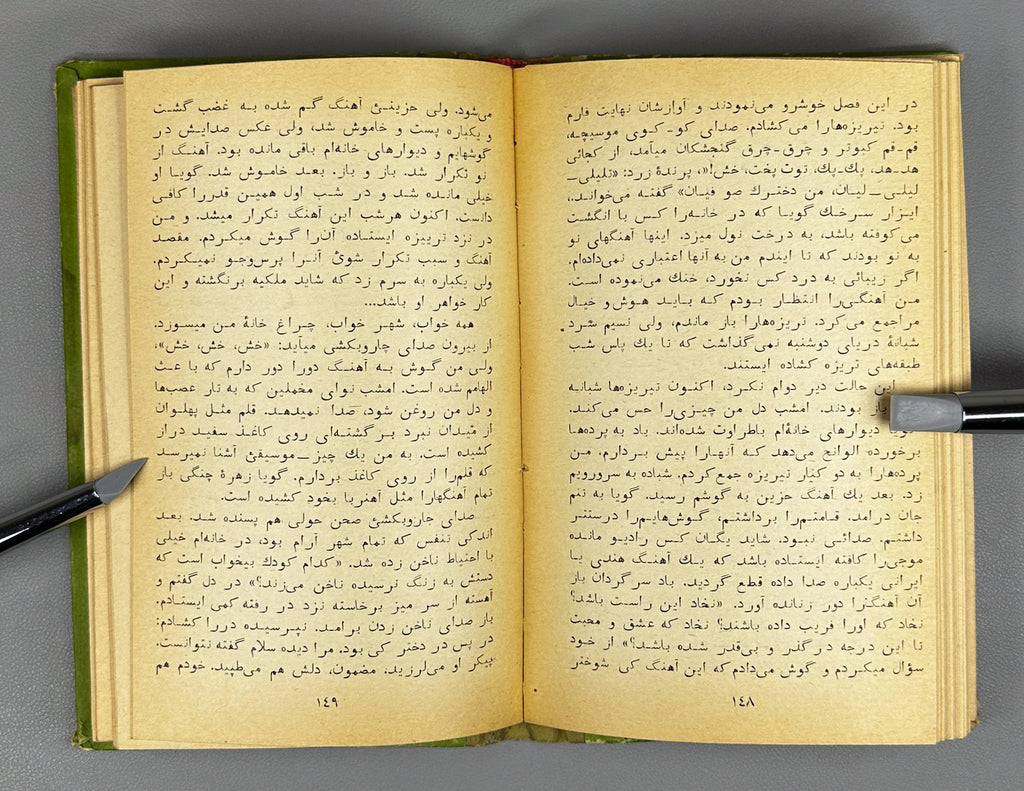 در این فصل خوشرو می‌نمودند و آوازشان نهایت فارم
بود. تیریزه‌هارا می‌کشادم. صدای کو-کوی موسیچه،
قم-قم کبوتر و چرق-چرق گنجشکان میآمد، از کجائی
هد-هد، پك-پك، توت پخت، خش!«، پرندهٔ زرد: «تلیلی–
لیلی–لیان، من دخترك صو فیان» گفته می‌خواند.،
ابزار سرخك گویا که در خانه‌را کس با انگشت
می‌کوفته باشد، به درخت نول میزد. اینها آهنگهای نو
به نو بودند که تا ایندم من به آنها اعتباری نمی‌داده‌ام.
اگر زیبائی به درد کس نخورد، خنك می‌نموده است.
من آهنگی‌را انتظار بودم که باید هوش و خیال
مراجمع می‌کرد. تریزه‌هارا باز ماندم، ولی نسیم سرد
شبانهٔ دریای دوشنبه نمی‌گذاشت که تا یك پاس شب
طبقه‌های تریزه کشاده ایستند.
این حالت دیر دوام نکرد، اکنون تیریزه‌ها شبانه
باز بودند. امشب دل من چیزی‌را حس می‌کند.
دیوارهای خانه‌ام باطراوت شده‌اند. باد به پرده‌ها
برخورده الوانج می‌دهد که آنهارا پیش بردارم. من
پرده‌هارا به دو کنار تیریزه جمع کردم. شباده به سرورویم
زد. بعد یك آهنگ حزین به گوشم رسید. گویا به تنم
جان درامد. قامتم‌را برداشتم، گوش‌هایم‌را درستتر
داشتم. صدائی نبود. شاید یگان کس رادیو مانده
موجی‌را کافته ایستاده باشد که یك آهنگ هندی یا
ایرانی یکباره صدا داده قطع گردید. باد سرگردان باز
آن آهنگ‌را دور زنانده آورد. «نخاد این راست باشد؟
نخاد که اورا فریب داده باشند؟ نخاد که عشق و محبت
تا این درجه درگذر و بی‌قدر شده باشد.؟» از خود
سؤال میکردم و گوش می‌دادم که این آهنگ کی شوختر
١٤٨
می‌شود. ولی حزینئ آهنگ گم شده به غضب گشت
و یکباره پست و خاموش شد، ولی عکس صدایش در
گوشهایم و دیوارهای خانه‌ام باقی مانده بود. آهنگ از
نو تکرار شد. باز و باز. بعد خاموش شد. گویا او
خیلی مانده شد و در شب اول همین قدررا کافی
دانست. اکنون هرشب این آهنگ تکرار میشد. و من
در نزد تریزه ایستاده آن‌را گوش میکردم. مقصد
آهنگ و سبب تکرار شوئ آنرا پرس‌وجو نمیکردم.
ولی یکباره به سرم زد که شاید ملکیه برنگشته و این
کار خواهر او باشد...
همه خواب، شهر خواب، چراغ خانهٔ من میسوزد.
از بیرون صدای چاروبکشی میآید: «خش، خش، خش»،
ولی من گوش به آهنگ دورا دور دارم که باعث
الهامم شده است. امشب نوای مخملین که به تار عصب‌ها
و دل من روغن شود، صدا نمیدهد. قلم مثل پهلوان
از میدان نبرد برگشته‌ای روی کاغذ سفید دراز
کشیده است. به من یك چیز–موسیقئ آشنا نمیرسد
که قلم‌را از روی کاغذ بردارم. گویا زهرهٔ چنگی باز
تمام آهنگهارا مثل آهنربا بخود کشیده است.
صدای جاروبکشئ صحن حولی هم پسنده شد. بعد
اندکی تنفس که تمام شهر آرام بود، در خانه‌ام خیلی
با احتیاط ناخن زده شد. «کدام کودك بیخواب است که
دستش به زنگ نرسیده ناخن می‌زند؟» در دل گفتم و
آهسته از سر میز برخاسته نزد در رفته کمی ایستادم.
باز صدای ناخن زدن برامد. نپرسیده دررا کشادم:
در پس در دختر کی بود. مرا دیده سلام گفته نتوانست.
پیکر او می‌لرزید. مضمون، دلش هم می‌طپید. خودم هم
١٤٩